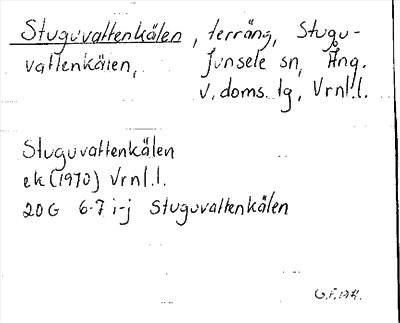 Stuguvattenkälen, terräng, Stugu-
vattenkälen, Junsele sn, Ång.
v. doms. lg, Vrnl.l.
Stuguvattenkälen
ek (1970) Vrnl.l.
20G 6-7 i-j Stuguvattenkälen